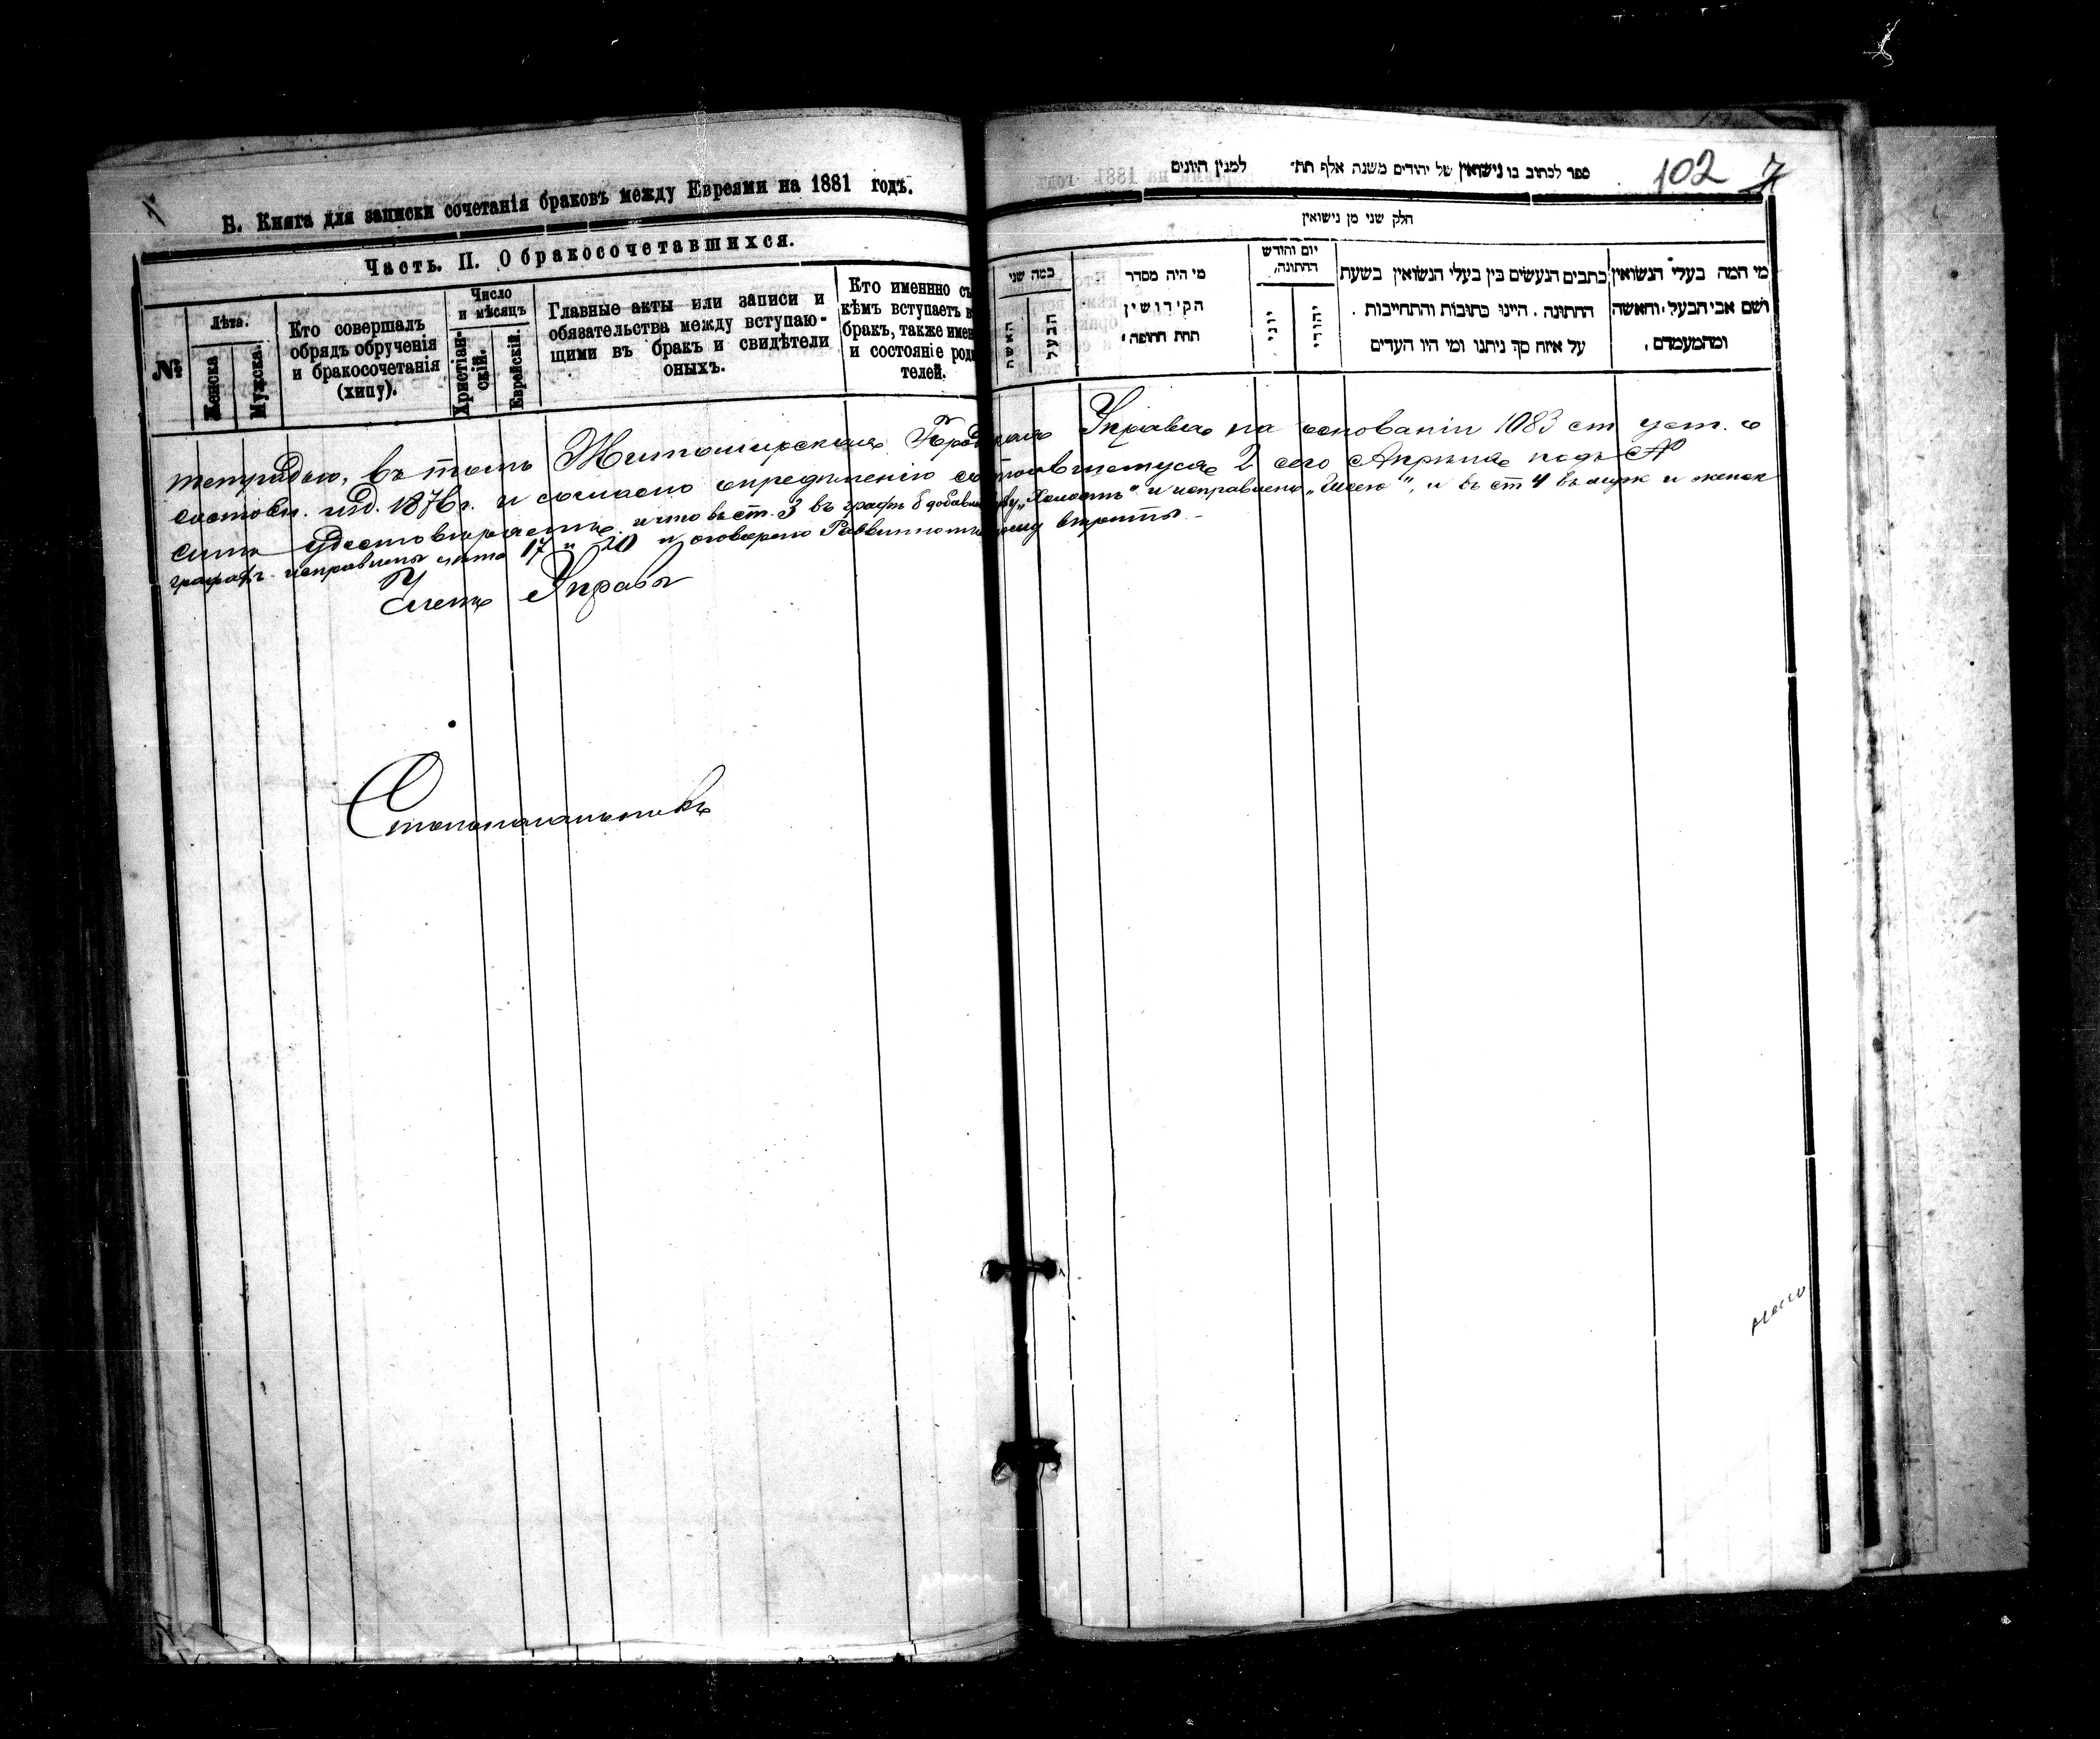 Б. Книга для записки сочетанія браковъ между Евреями на 1881 годъ.
Часть. II. О бракосочетавшихся.
№
Лѣта.
Женска
Мужска.
Кто совершалъ
обрядъ обрученія
и бракосочетанія
(хипу).
Число
и мѣсяцъ
Христіан-
скій.
Еврейскій.
Главные акты или записи и
обязательства между вступаю-
щими въ брак и свидѣтели
оныхъ.
Кто именнно съ
кѣмъ вступаетъ в
бракъ, также имен
и состояніе роди
телей.
102 7
ספר לכתוב בו נישואין של יהודים משנת אלף תת״ למנין היונים
חלק שני מן נישואין
מי המה בעלי הנשואין
ושם אבי הבעל והאשה
ומהמעמדם.
כתבים הנעשים בין בעלי הנשואין בשעת
החתונה. היינו כתובות והתחייבות.
על איזה סך ניתנו ומי היו העדים
יום והודש
החתונה,
יהודי
יוני
מי היה מסדר
הקידושין
תחת החופה.
כמה שני
הבעל
האשה
тетрадью, въ томъ Житомирская Городская Управа на основаніи 1083 ст уст. о
состоян. изд. 1876 г. и согласно опредѣленію состоявшемуся 2 сего Апрѣля подъ №
симъ удостовѣряетъ и что въ ст. 3 въ графѣ 8 добавлено „Холостъ" и исправлено и въ ст 4 въ муж и женск
графах исправлены лѣта 17 и 20 и оговорено Раввиномъ
Членъ Управы
Столоначальникъ